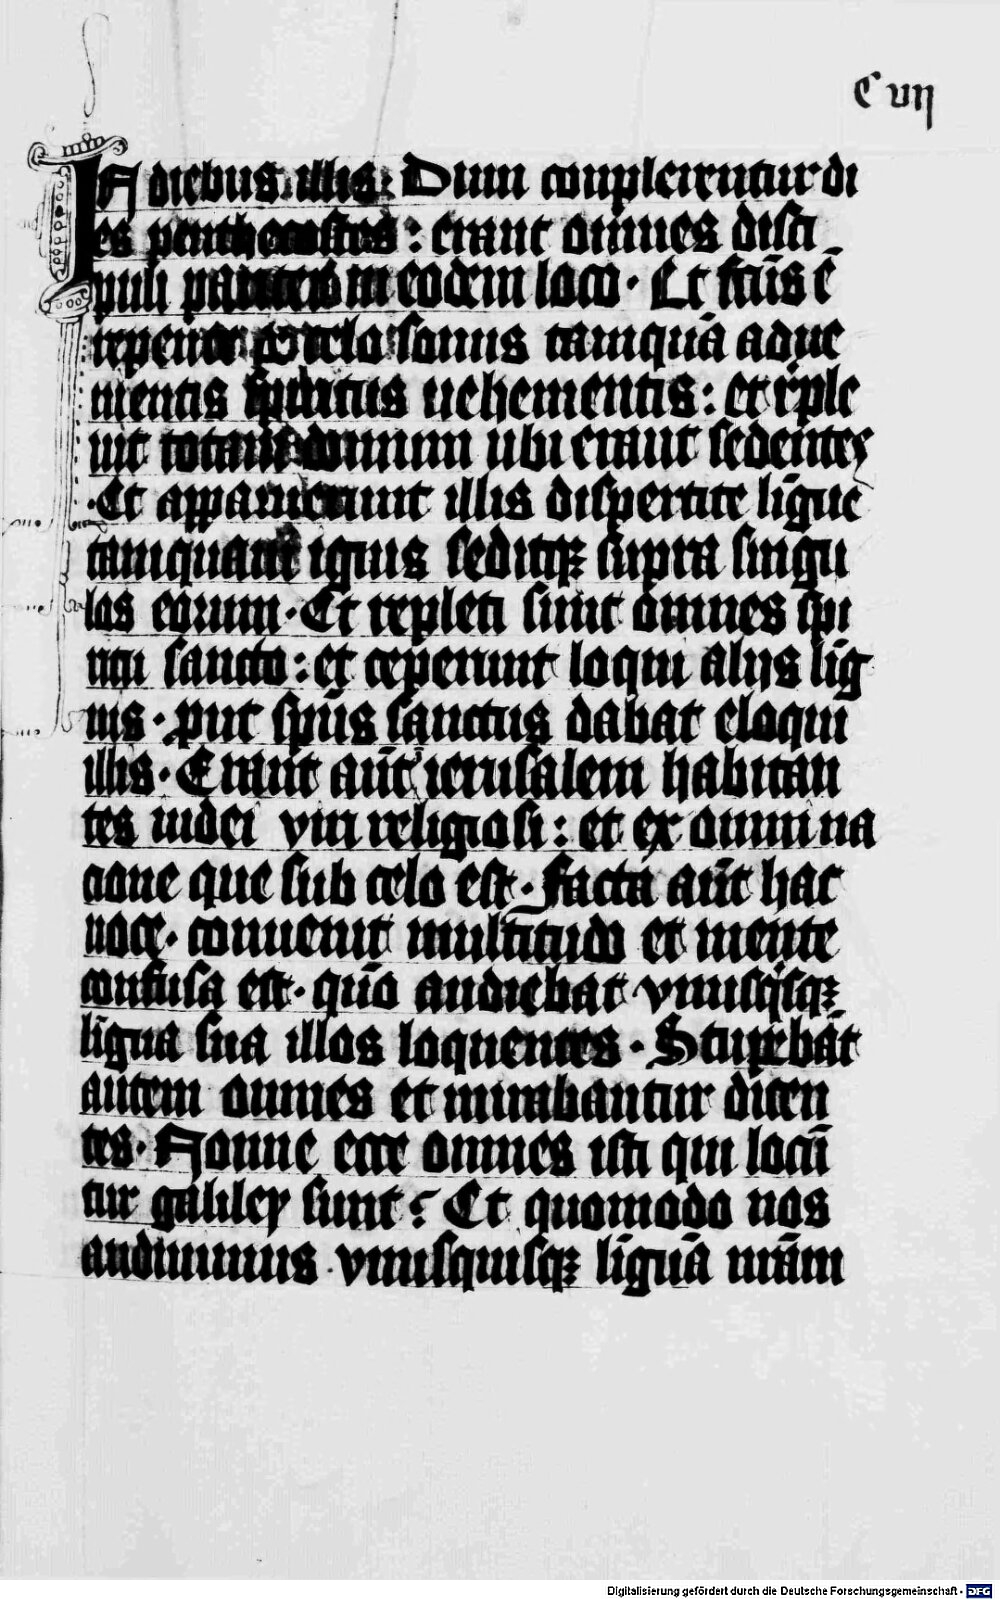 C vij
In diebus illis: Dum complerentur di
es penthecostes: erant omnes disci
puli pariter in eodem loco. Et fc̄us ē
repente de celo sonus tamquā adue
nientis spiritus uehementis: et reple
uit totam domum ubi erant sedentes
.Et apparuerunt illis dispertite ligue
tamquam ignis seditq; supra singu
los eorum. Et repleti sunt omnes spi
ritu sancto: et ceperunt loqui alijs lig
uis. put spūs sanctus dabat eloqui
illis. Erant aūt ierusalem habitan
tes iudei viri religiosi: et ex omni na
cione que sub celo est. Facta aūt hac
uoce. conuenit multitudo et mente
confusa est. quō audiebat vnusqisq;
ligua sua illos loquentes. Stupebāt
autem omnes et mirabantur dicen
tes. Nonne ecce omnes isti qui locū
tur galiley sunt: Et quomodo nos
audiuimus vnusquisq; liguā nrām
Digitalisierung gefördert durch die Deutsche Forschungsgemeinschaft - DFG